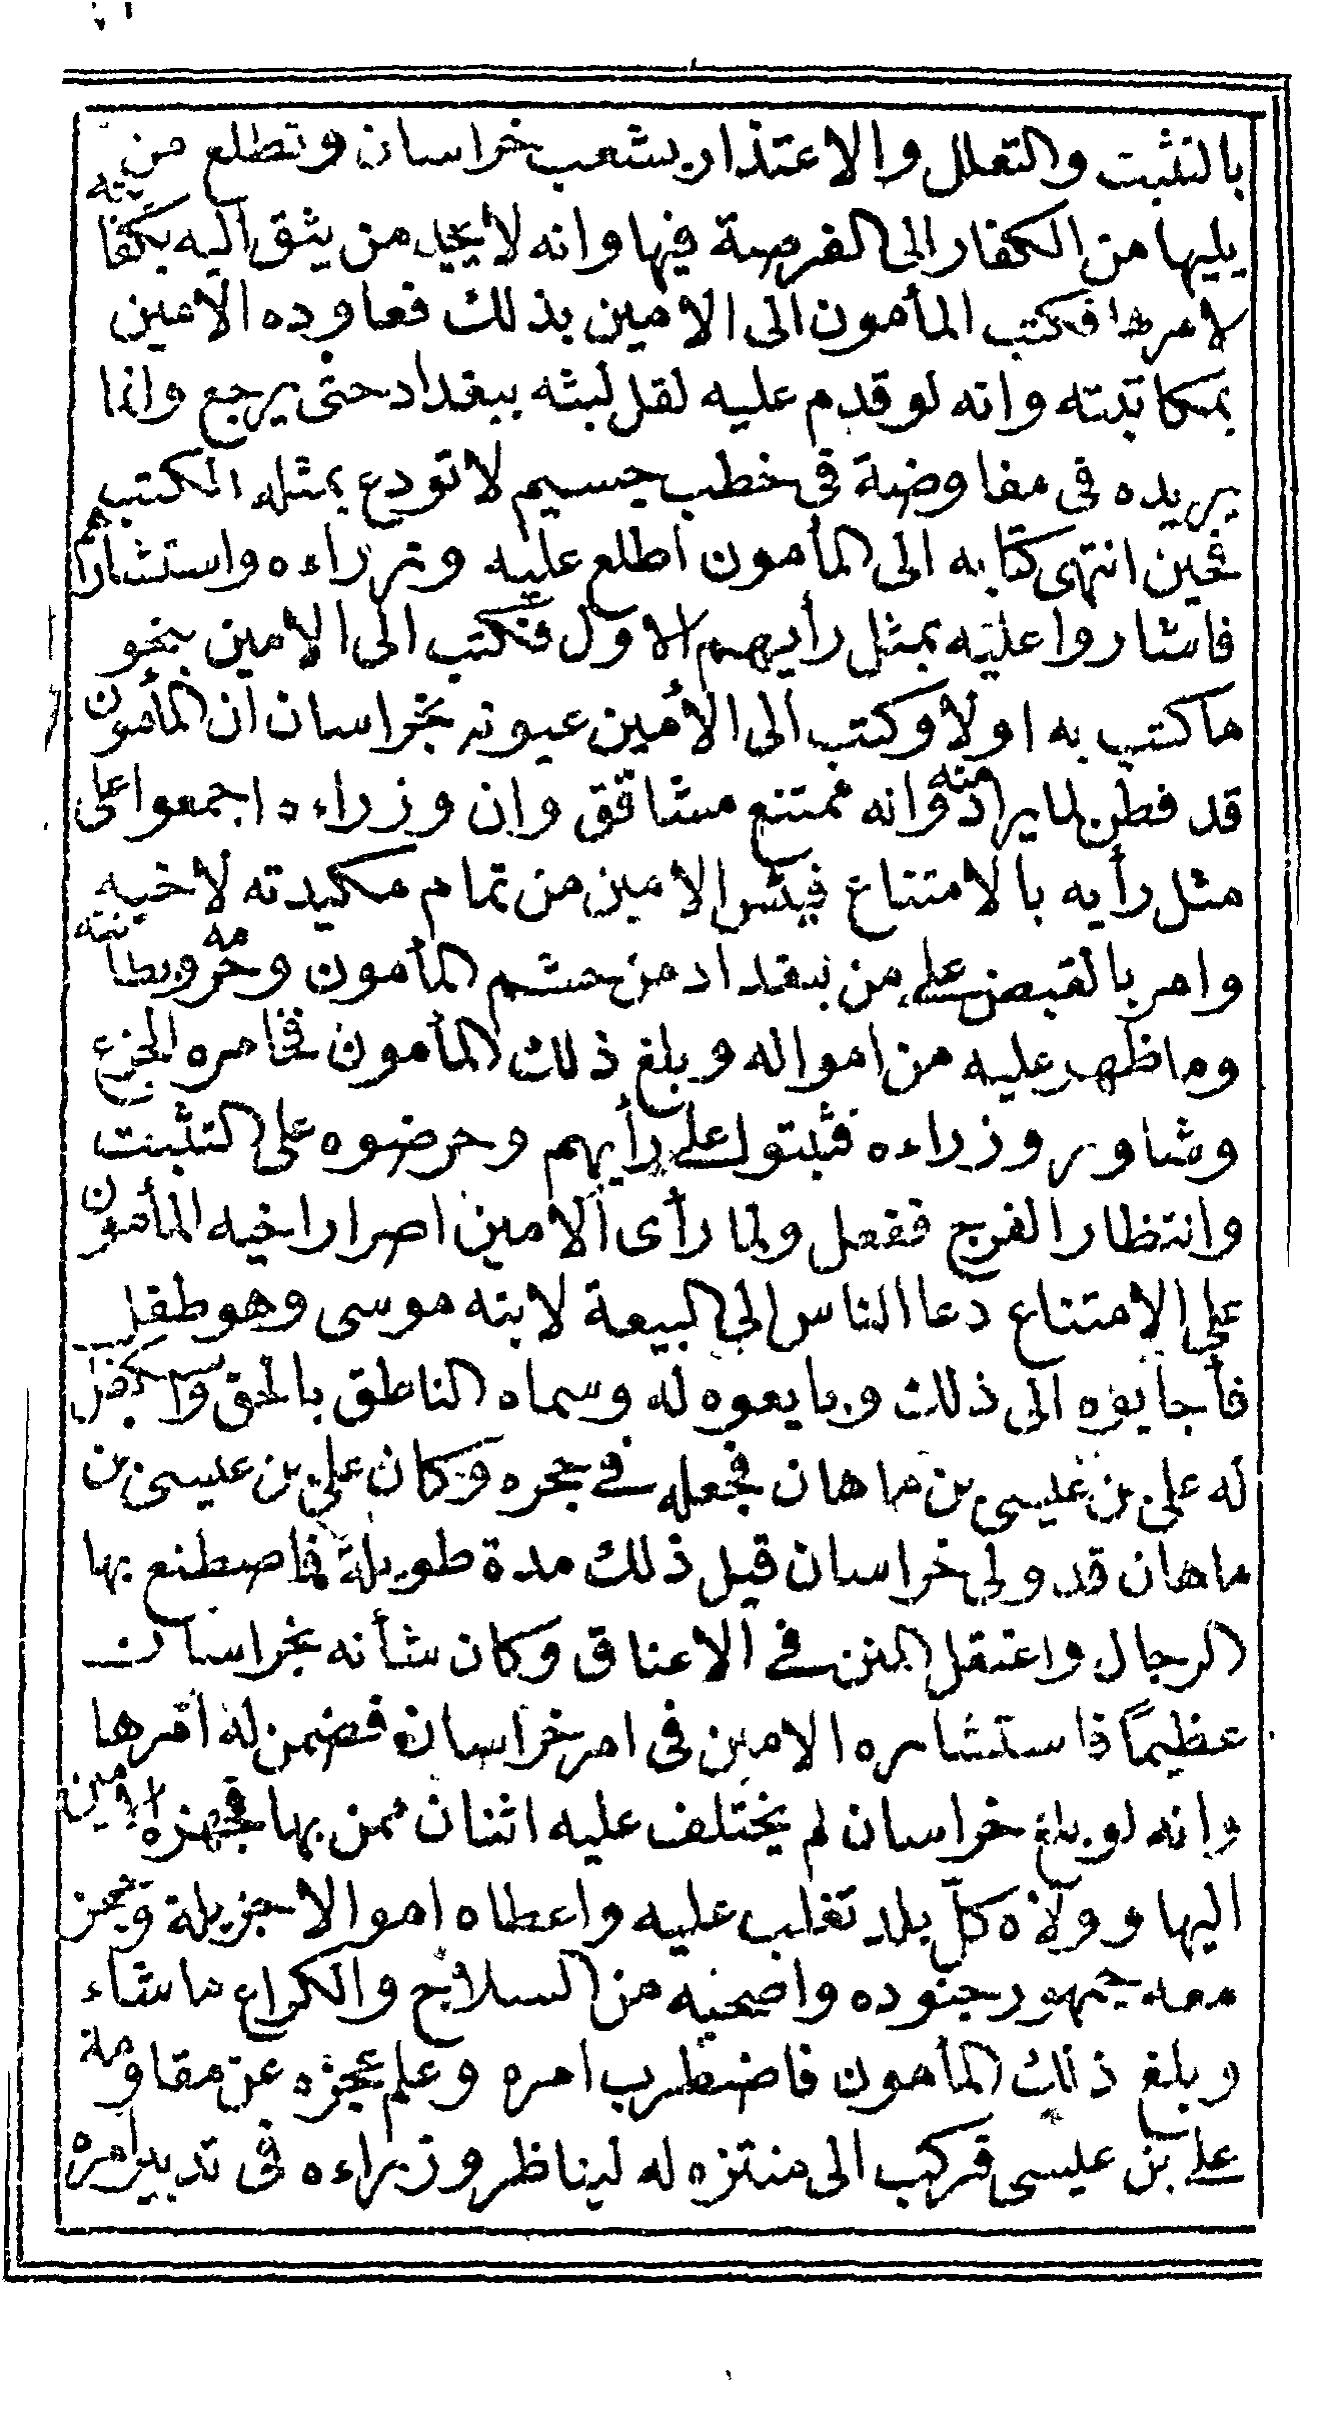 بالتثبت والتعلل والاعتذار بشعب خراسان وتطلع من
يليها من الكفار الى الفرصة فيها وانه لا يجد من يثق اليه بكفايته
لامرها فكتب المأمون الى الامين بذلك فعاوده الامين
بمكاتبته وانه لو قدم عليه لقل لبثه ببغداد حتى يرجع وانما
يريده فى مفاوضة فى خطب جسيم لا تودع بمثله الكتب
فحين انتهى كتابه الى المأمون اطلع عليه وزراءه واستشارهم
فاشاروا عليه بمثل رأيهم الاول فكتب الى الامين بنحو
ما كتب به اولا وكتب الى الأمين عيونه بخراسان ان المأمون
قد فطن لما يراد منه وانه ممتنع مشاقق وان وزراءه اجمعوا على
مثل رأيه بالامتناع فيئس الامين من تمام مكيدته لاخيه
وامر بالقبض على من ببغداد من حشم المأمون وحرمه وبطانته
وما ظهر عليه من امواله وبلغ ذلك المأمون فخامره الجزع
وشاور وزراءه فثبتوا على رأيهم وحرضوه على التثبت
وانتظار الفرج ففعل ولما رأى الامين اصرار اخيه المأمون
على الامتناع دعا الناس الى البيعة لابنه موسى وهو طفل
فأجابوه الى ذلك وبايعوه له وسماه الناطق بالحق واستكفل
له على بن عيسى بن ماهان فجعله فى حجره وكان على بن عيسى بن
ماهان قد ولى خراسان قبل ذلك مدة طويلة فاصطنع بها
الرجال واعتقل المنن فى الاعناق وكان شأنه بخراسان
عظيمًا فاستشاره الامين فى امر خراسان فضمن له امرها
وانه لو بلغ خراسان لم يختلف عليه اثنان ممن بها فجهزه الامين
اليها وولاه كلّ بلد تغلب عليه واعطاه اموالا جزيلة
معه جمهور جنوده واصحبه من السلاح والكراع ما شاء
وبلغ ذلك المأمون فاضطرب امره وعلم عجزه عن مقاومة
على بن عيسى فركب الى منتزه له ليناظر وزراءه فى تدبير امره